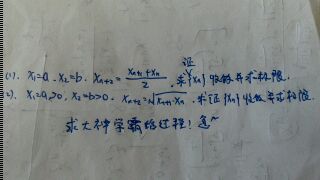 证
(1). X₁=a, X₂=b. Xₙ₊₂ = (Xₙ₊₁+Xₙ)/2. 求{Xₙ}收敛并求极限.
(2). X₁=a>0, X₂=b>0. Xₙ₊₂=√(Xₙ₊₁·Xₙ). 求证{Xₙ}收敛并求极限.
求大神学霸给过程!